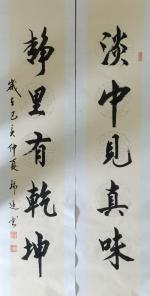 淡中見真味
静里有乾坤
歲在己亥仲夏